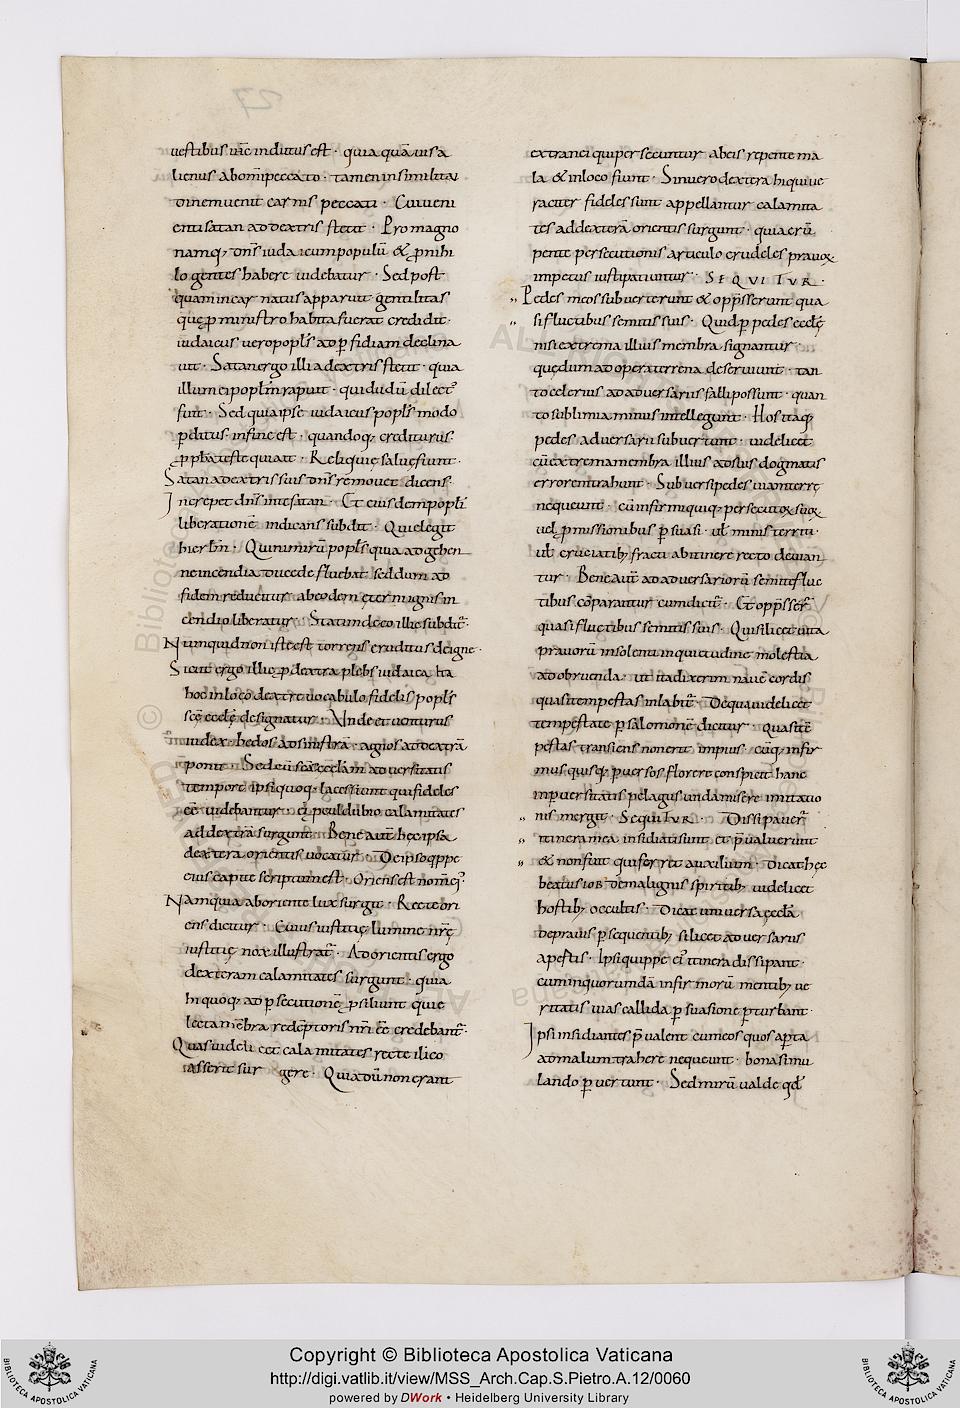 uestibus u̅r̅e indutus est · quia qua̅uis a
lienus ab omi̅ peccato · tamen in similitu
dinem uenit carnis peccati · Cui ueni
enti satan ad dextris stetit · Pro magno
namq; dn̅s iudaicum populu̅ & ꝓ nihi
lo gentes habere uidebatur · Sed post
quam in car natus apparuit gentilitas
quę ꝓ ministro habita fuerat credidit ·
iudaicus uero popl̅s ad ꝑfidiam declina
uit · Satan ergo illi a dextris stetit · quia
illum ei popl̅m rapuit · qui dudu̅ dilect'
fuit · Sed quia ipse iudaicus popl̅s modo
ꝑditus · in fine est · quandoq; crediturus ·
ꝓph̅a teste qui ait · Reliquię saluę fiunt ·
Satan a dextris suis dn̅s remouet dicens ·
Increpet dn̅s in te satan · Et eiusdem popl̅i
liberatione̅ indicans subdit · Qui elegit
hierl̅m · Qui nimiru̅ popl̅s quia ad gehen
ne incendia duce defluebat sed dum ad
fidem reducitur ab eodem ęterni ignis in
cendio liberatur · Statim de eo illic subdit̅ ·
Numquid non iste est torrens eruditus de igne ·
Sicut ergo illic ꝓ dextra plebs iudaica ita
hoc in loco dextre uocabulo fidelis popl̅s
sc̅ę eccl̅ę designatur · Unde et uenturus
iudex · hedos ad sinistra̅ · agnos ad dextra̅
ponit · Sed cu̅ sc̅a̅ eccl̅am aduersitatis
tempore ipsi quoq; lacessiunt qui fideles
ee̅ uidebantur · ei ꝓcul dubio calamitates
ad dextra̅ surgunt · Bene aut̅ hęc ipsa
dextera orientis uocatur · De ipso q̅ppe
eius capite scriptum est · Oriens est nom̅ ei' ·
Nam quia ab oriente lux surgit · Recte ori
ens dicitur · Cuius iustitię lumine nr̅ę
iustitię nox illustrat̅ · Ad orientis ergo
dexteram calamitates surgunt · quia
hi quoq; ad ꝑsecutione̅ ꝓsiliunt qui e
lecta me̅bra rede̅ptoris nr̅i ee̅ credebant̅ ·
Quas uideli cet calamitates recte ilico
asserit sur gere · Quia du̅ non erant
extranei qui persecuntur ab eis repente ma
la & in loco fiunt · Si uero dextera hi qui ue
raciter fideles sunt appellantur calamita
tes ad dextera̅ orientis surgunt · quia eru̅
pente persecutionis articulo crudeles prauoꝝ
impetus iusti patiuntur · SEQUITUR ·
Pedes meos subuerterunt & opp̅sserunt qua
si fluctibus semitis suis · Quid ꝑ pedes eccl̅ę
nisi extrema illius membra signantur ·
quę dum ad opera terrena deseruiunt · tan
to celerius ad aduersariis falli possunt · quan
to sublimia minus intellegunt · Hos itaq;
pedes aduersarii subuertunt · uidelicet
cu̅ extrema membra illius ad suis dogmatis
errore̅ trahunt · Subuersi pedes uiam terrę
nequeunt · cu̅ infirmi quiq; persecutoꝝ suoꝝ
uel ꝓmissionibus ꝑsuasi · ul̅ minis territi ·
ul̅ cruciatib; fracti ab itinere recto deuian
tur · Bene aut̅ ad aduersarioru̅ semite fluc
tibus co̅parantur cum dicit̅ · Et opp̅sser̅
quasi fluctibus semitis suis · Quis ilicet uita
prauoru̅ insolenti inquietudine molestia
ad obruenda · ut ita dixerim naue̅ cordis
quasi tempestas inlabit̅ · De qua uidelicet
tempestate ꝑ salomone̅ dicitur · quasi te̅
pestas transiens non erit impius · cu̅q; infir
mus quisq; ꝑuersos florere conspicit hanc
in ꝑuersitatis pelagus unda misere imitatio
nis mergit · SEQUITUR · Dissipauer̅
itinera mea insidiati sunt et p̅ualuerunt
& non fuit qui ferret auxilium · Dicat hęc
beatus iob de malignis spiritib; uidelicet
hostib; occultis · Dicat uniuersa eccl̅a
de prauis ꝑsequentib; silicet aduersariis
apestis · Ipsi quippe ei' itinera dissipant ·
cum in quorumda̅ infirmoru̅ mentib; ue
ritatis uias callida ꝑsuasione ꝑturbant ·
Ipsi insidiantes p̅ualent cum eos quos aꝑta
ad malum trahere nequeunt · bona simu
lando ꝑuertunt · Sed miru̅ ualde qd̅
Copyright © Biblioteca Apostolica Vaticana
http://digi.vatlib.it/view/MSS_Arch.Cap.S.Pietro.A.12/0060
powered by DWork • Heidelberg University Library